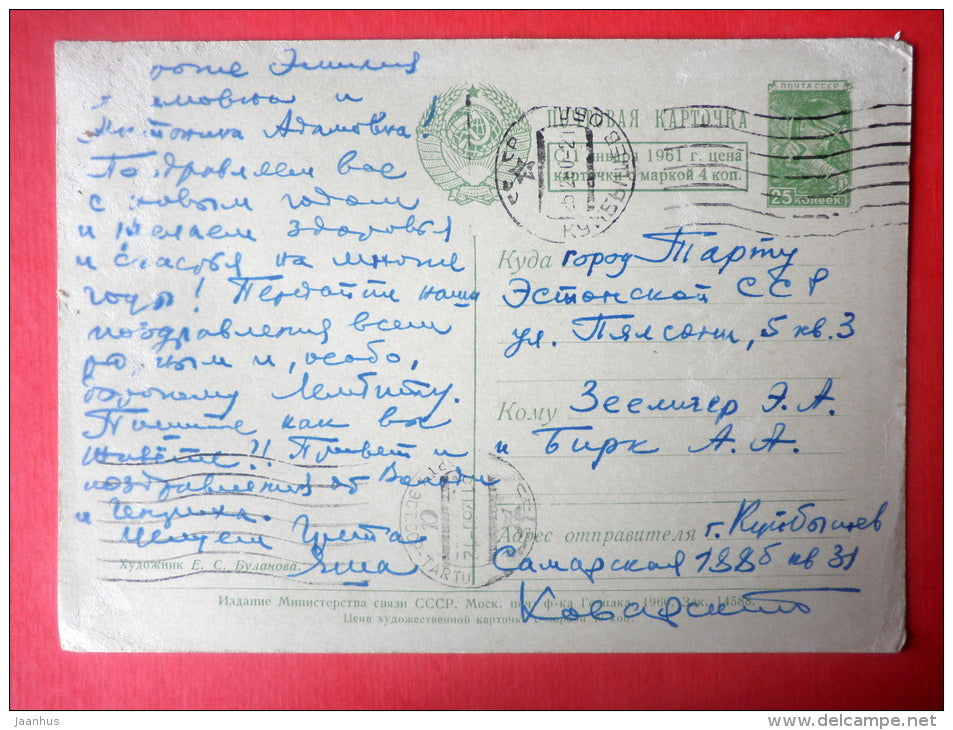 Эмилия
и
Антонина Адамовна!
Поздравляем вас
с новым годом
и желаем здоровья
и счастья на многие
годы! Передайте наши
поздравления всем
родным и, особо,
дорогому Лембиту.
Пишите как вы
живёте?! Привет и
поздравления от Володи
и Генриха.
Целуем Грета
Яша
Художник Е. С. Буланова.
ПОЧТОВАЯ КАРТОЧКА
С 1 января 1961 г. цена
карточки с маркой 4 коп.
ПОЧТА СССР
25 копеек
СССР
КУЙБЫШЕВ
Куда город Тарту
Эстонской ССР
ул. Пялсони, 5 кв. 3
Кому Зеелигер Э. А.
и Бирк А. А.
TARTU
Адрес отправителя г. Куйбышев
Самарская 188б кв 31
Издание Министерства связи СССР. Моск. печ. ф-ка Гознака. 1960. Зак. 14588.
Цена художественной карточки с маркой коп.
jaanhus
www.delcampe.net